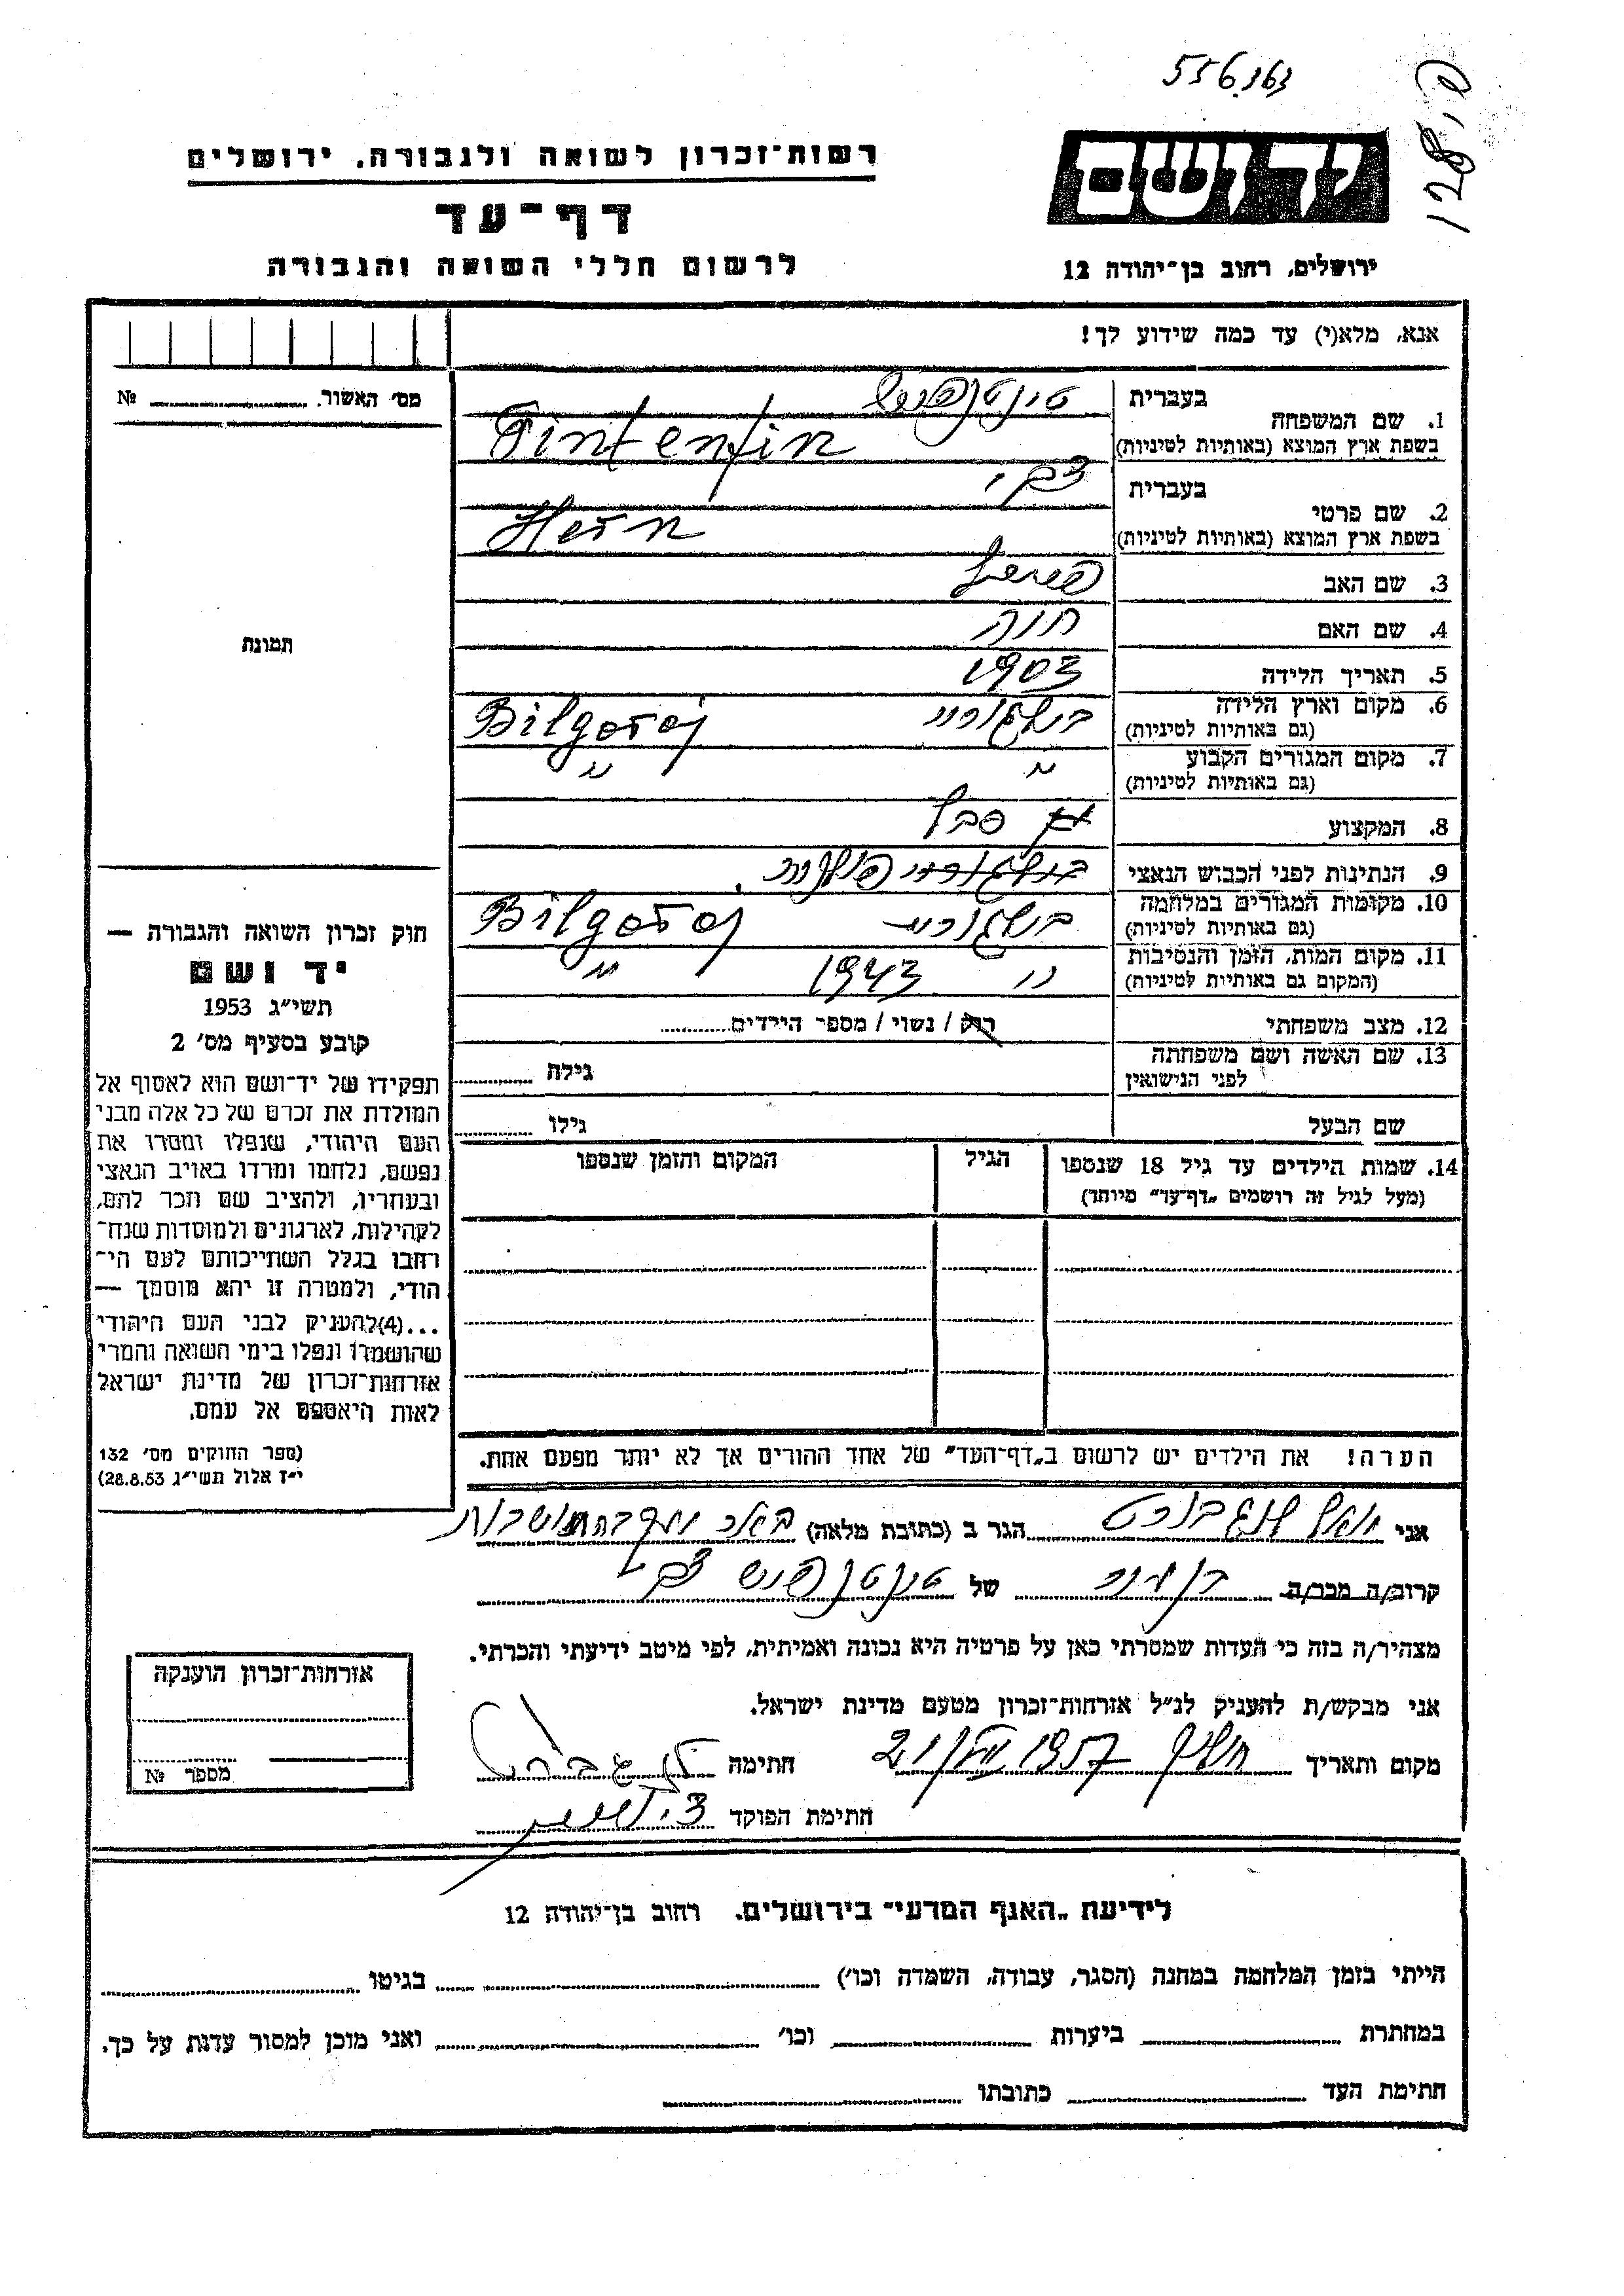 556363
128
רשות־זכרון לשואה ולגבורה, ירושלים
דף־עד
לרשום חללי השואה והגבורה
יד ושם
ירושלים, רחוב בן־יהודה 12
אנא, מלא(י) עד כמה שידוע לך!
מס׳ האשור. №
תמונת
1. שם המשפחה
בעברית
בשפת ארץ המוצא (באותיות לטיניות) Tintenfin
2. שם פרטי
בעברית
בשפת ארץ המוצא (באותיות לטיניות) Hern
3. שם האב
4. שם האם חוה
5. תאריך הלידה 1903
6. מקום וארץ הלידה בילגוריי Bilgoraj
(גם באותיות לטיניות)
7. מקום המגורים הקבוע " "
(גם באותיות לטיניות)
8. המקצוע סבל
9. הנתינות לפני הכבוש הנאצי פולנית
10. מקומות המגורים במלחמה בילגוריי Bilgoraj
(גם באותיות לטיניות)
11. מקום המות, הזמן והנסיבות " 1943 "
(המקום גם באותיות לטיניות)
12. מצב משפחתי רוק / נשוי / מספר הילדים
13. שם האשה ושם משפחתה גילה
לפני הנישואין
שם הבעל גילו
14. שמות הילדים עד גיל 18 שנספו הגיל המקום והזמן שנספו
(מעל לגיל זה רושמים „דף־עד״ מיוחד)
הערה! את הילדים יש לרשום ב„דף־העד״ של אחד ההורים אך לא יותר מפעם אחת.
חוק זכרון השואה והגבורה —
יד ושם
תשי״ג 1953
קובע בסעיף מס׳ 2
תפקידו של יד־ושם הוא לאסוף אל
המולדת את זכרם של כל אלה מבני
העם היהודי, שנפלו ומסרו את
נפשם, נלחמו ומרדו באויב הנאצי
ובעוזריו, ולהציב שם וזכר להם,
לקהילות, לארגונים ולמוסדות שנח־
רחבו בגלל השתייכותם לעם הי־
הודי, ולמטרה זו יהא מוסמך —
...(4)להעניק לבני העם היהודי
שהושמדו ונפלו בימי השואה והמרי
אזרחות־זכרון של מדינת ישראל
לאות היאספם אל עמם.
(ספר החוקים מס׳ 132
י״ז אלול תשי״ג 28.8.53)
אני הגר ב (כתובת מלאה)
קרוב/ה מכר/ה בן דוד של טינטנפיש צבי
מצהיר/ה בזה כי העדות שמסרתי כאן על פרטיה היא נכונה ואמיתית, לפי מיטב ידיעתי והכרתי.
אני מבקש/ת להעניק לנ״ל אזרחות־זכרון מטעם מדינת ישראל.
מקום ותאריך 1957 חתימה
חתימת הפוקד
אזרחות־זכרון הוענקה
מספר №
לידיעת „האגף המדעי״ בירושלים, רחוב בן־יהודה 12
הייתי בזמן המלחמה במחנה (הסגר, עבודה, השמדה וכו׳) בגיטו
במחתרת ביערות וכו׳ ואני מוכן למסור עדות על כך.
חתימת העד כתובתו